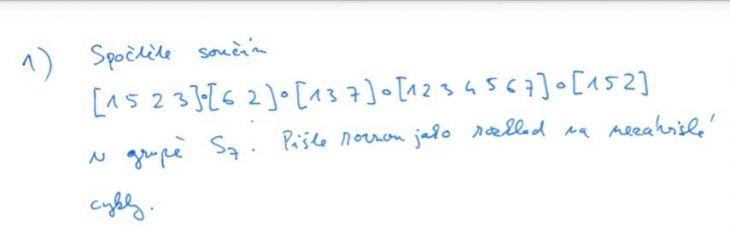 1) Spočtěte součin
[1 5 2 3]∘[6 2]∘[1 3 7]∘[1 2 3 4 5 6 7]∘[1 5 2]
v grupě S₇. Pište rovnou jako rozklad na nezávislé
cykly.